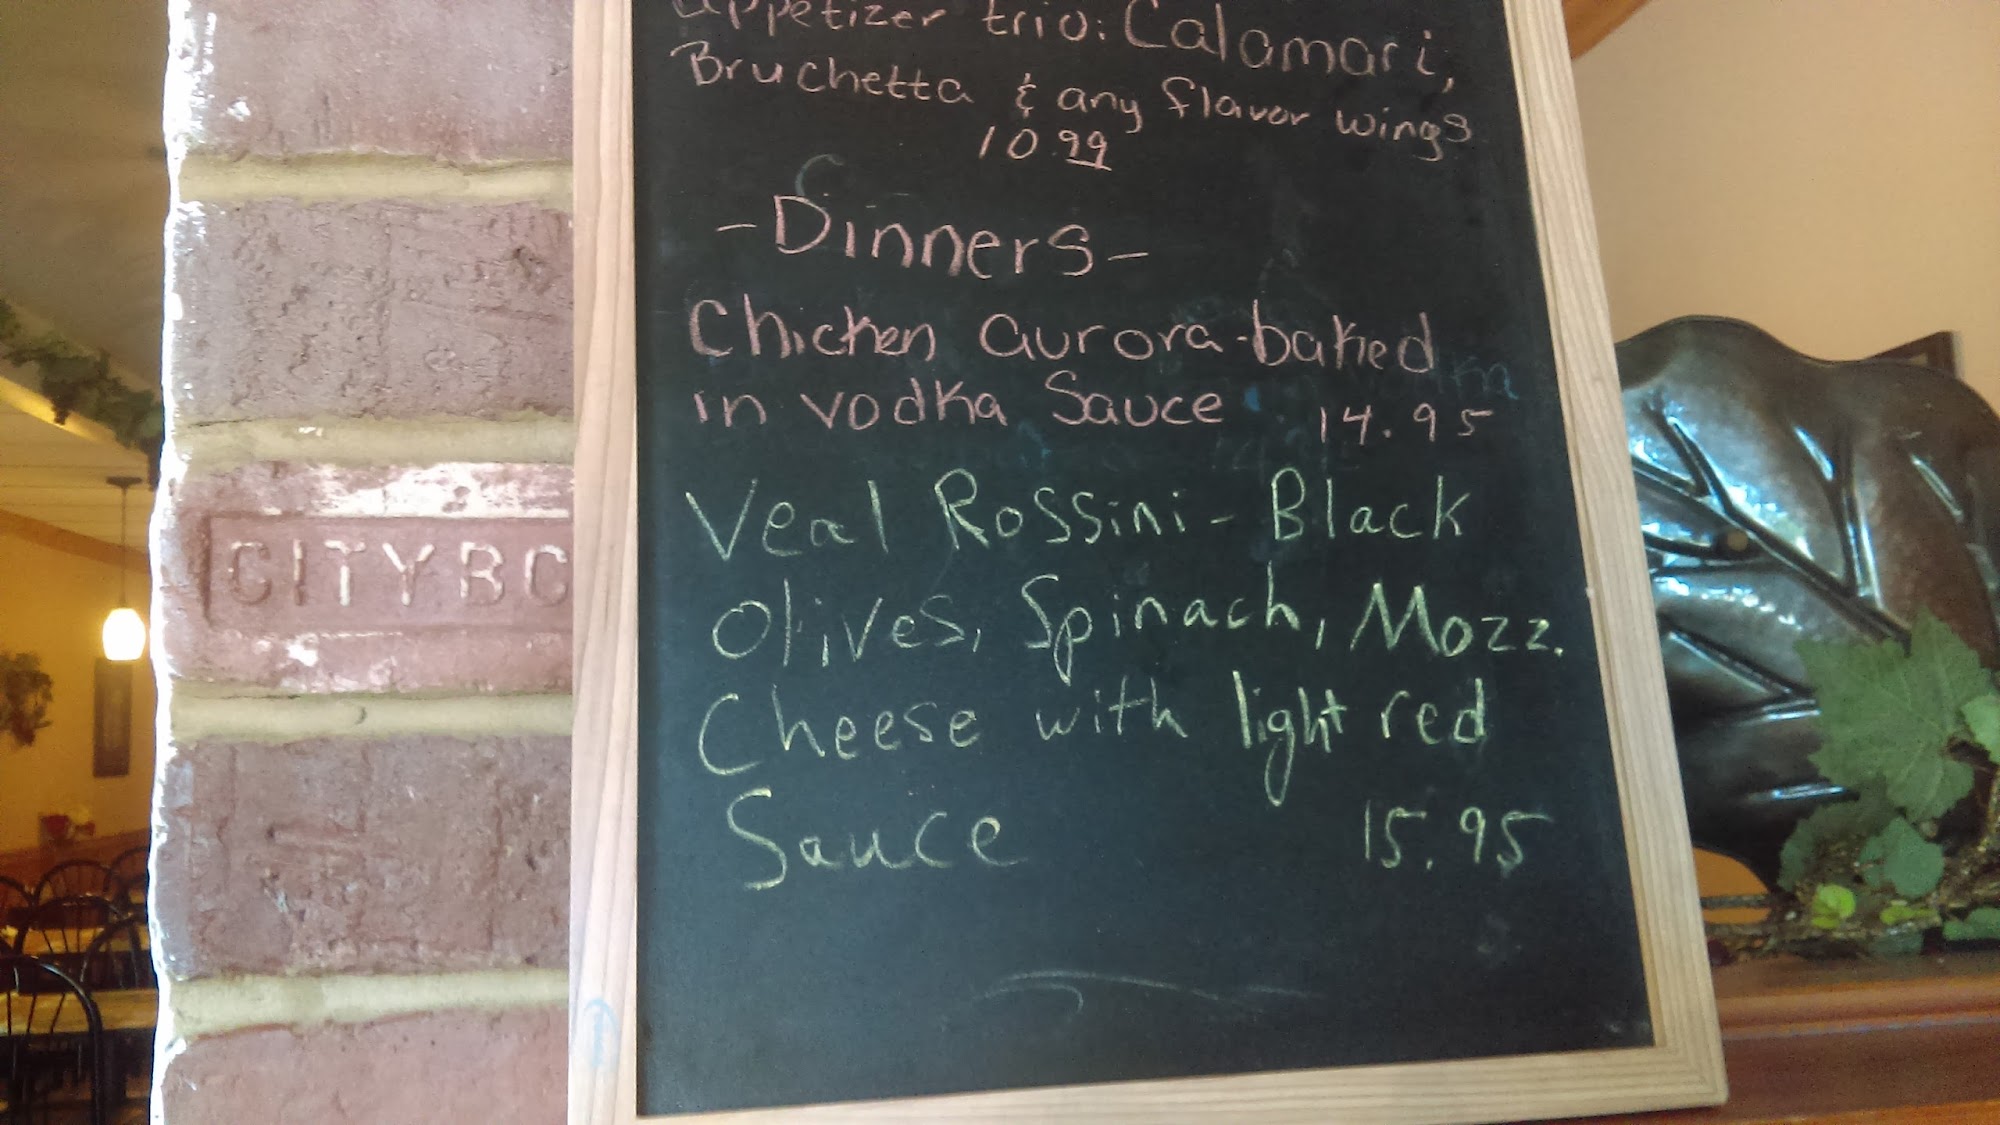 appetizer trio: Calamari,
Bruchetta & any flavor wings
10.99
-Dinners-
Chicken aurora-baked
in vodka Sauce 14.95
Veal Rossini - Black
Olives, Spinach, Mozz.
Cheese with light red
Sauce 15.95
CITYBC